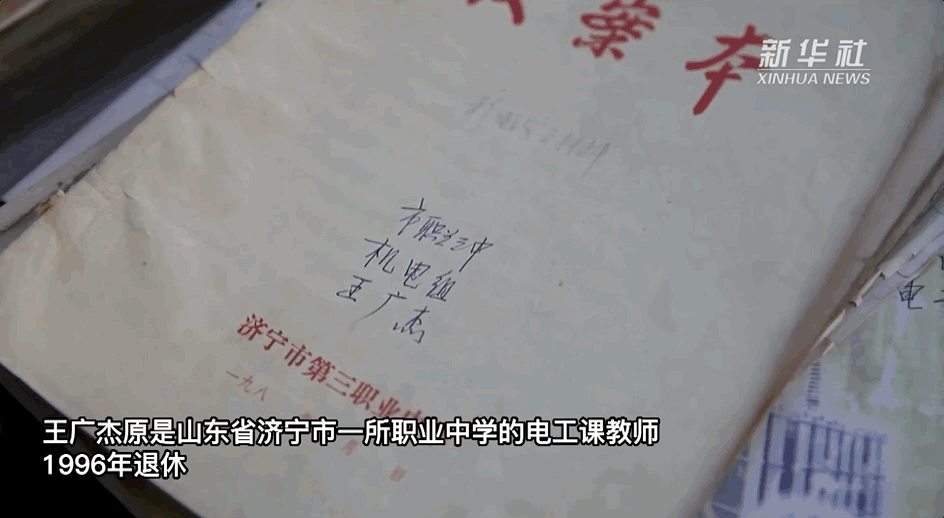 案本
新华社
XINHUA NEWS
市职三中
机电组
王广杰
济宁市第三职业中
一九八
月
电
王广杰原是山东省济宁市一所职业中学的电工课教师
1996年退休